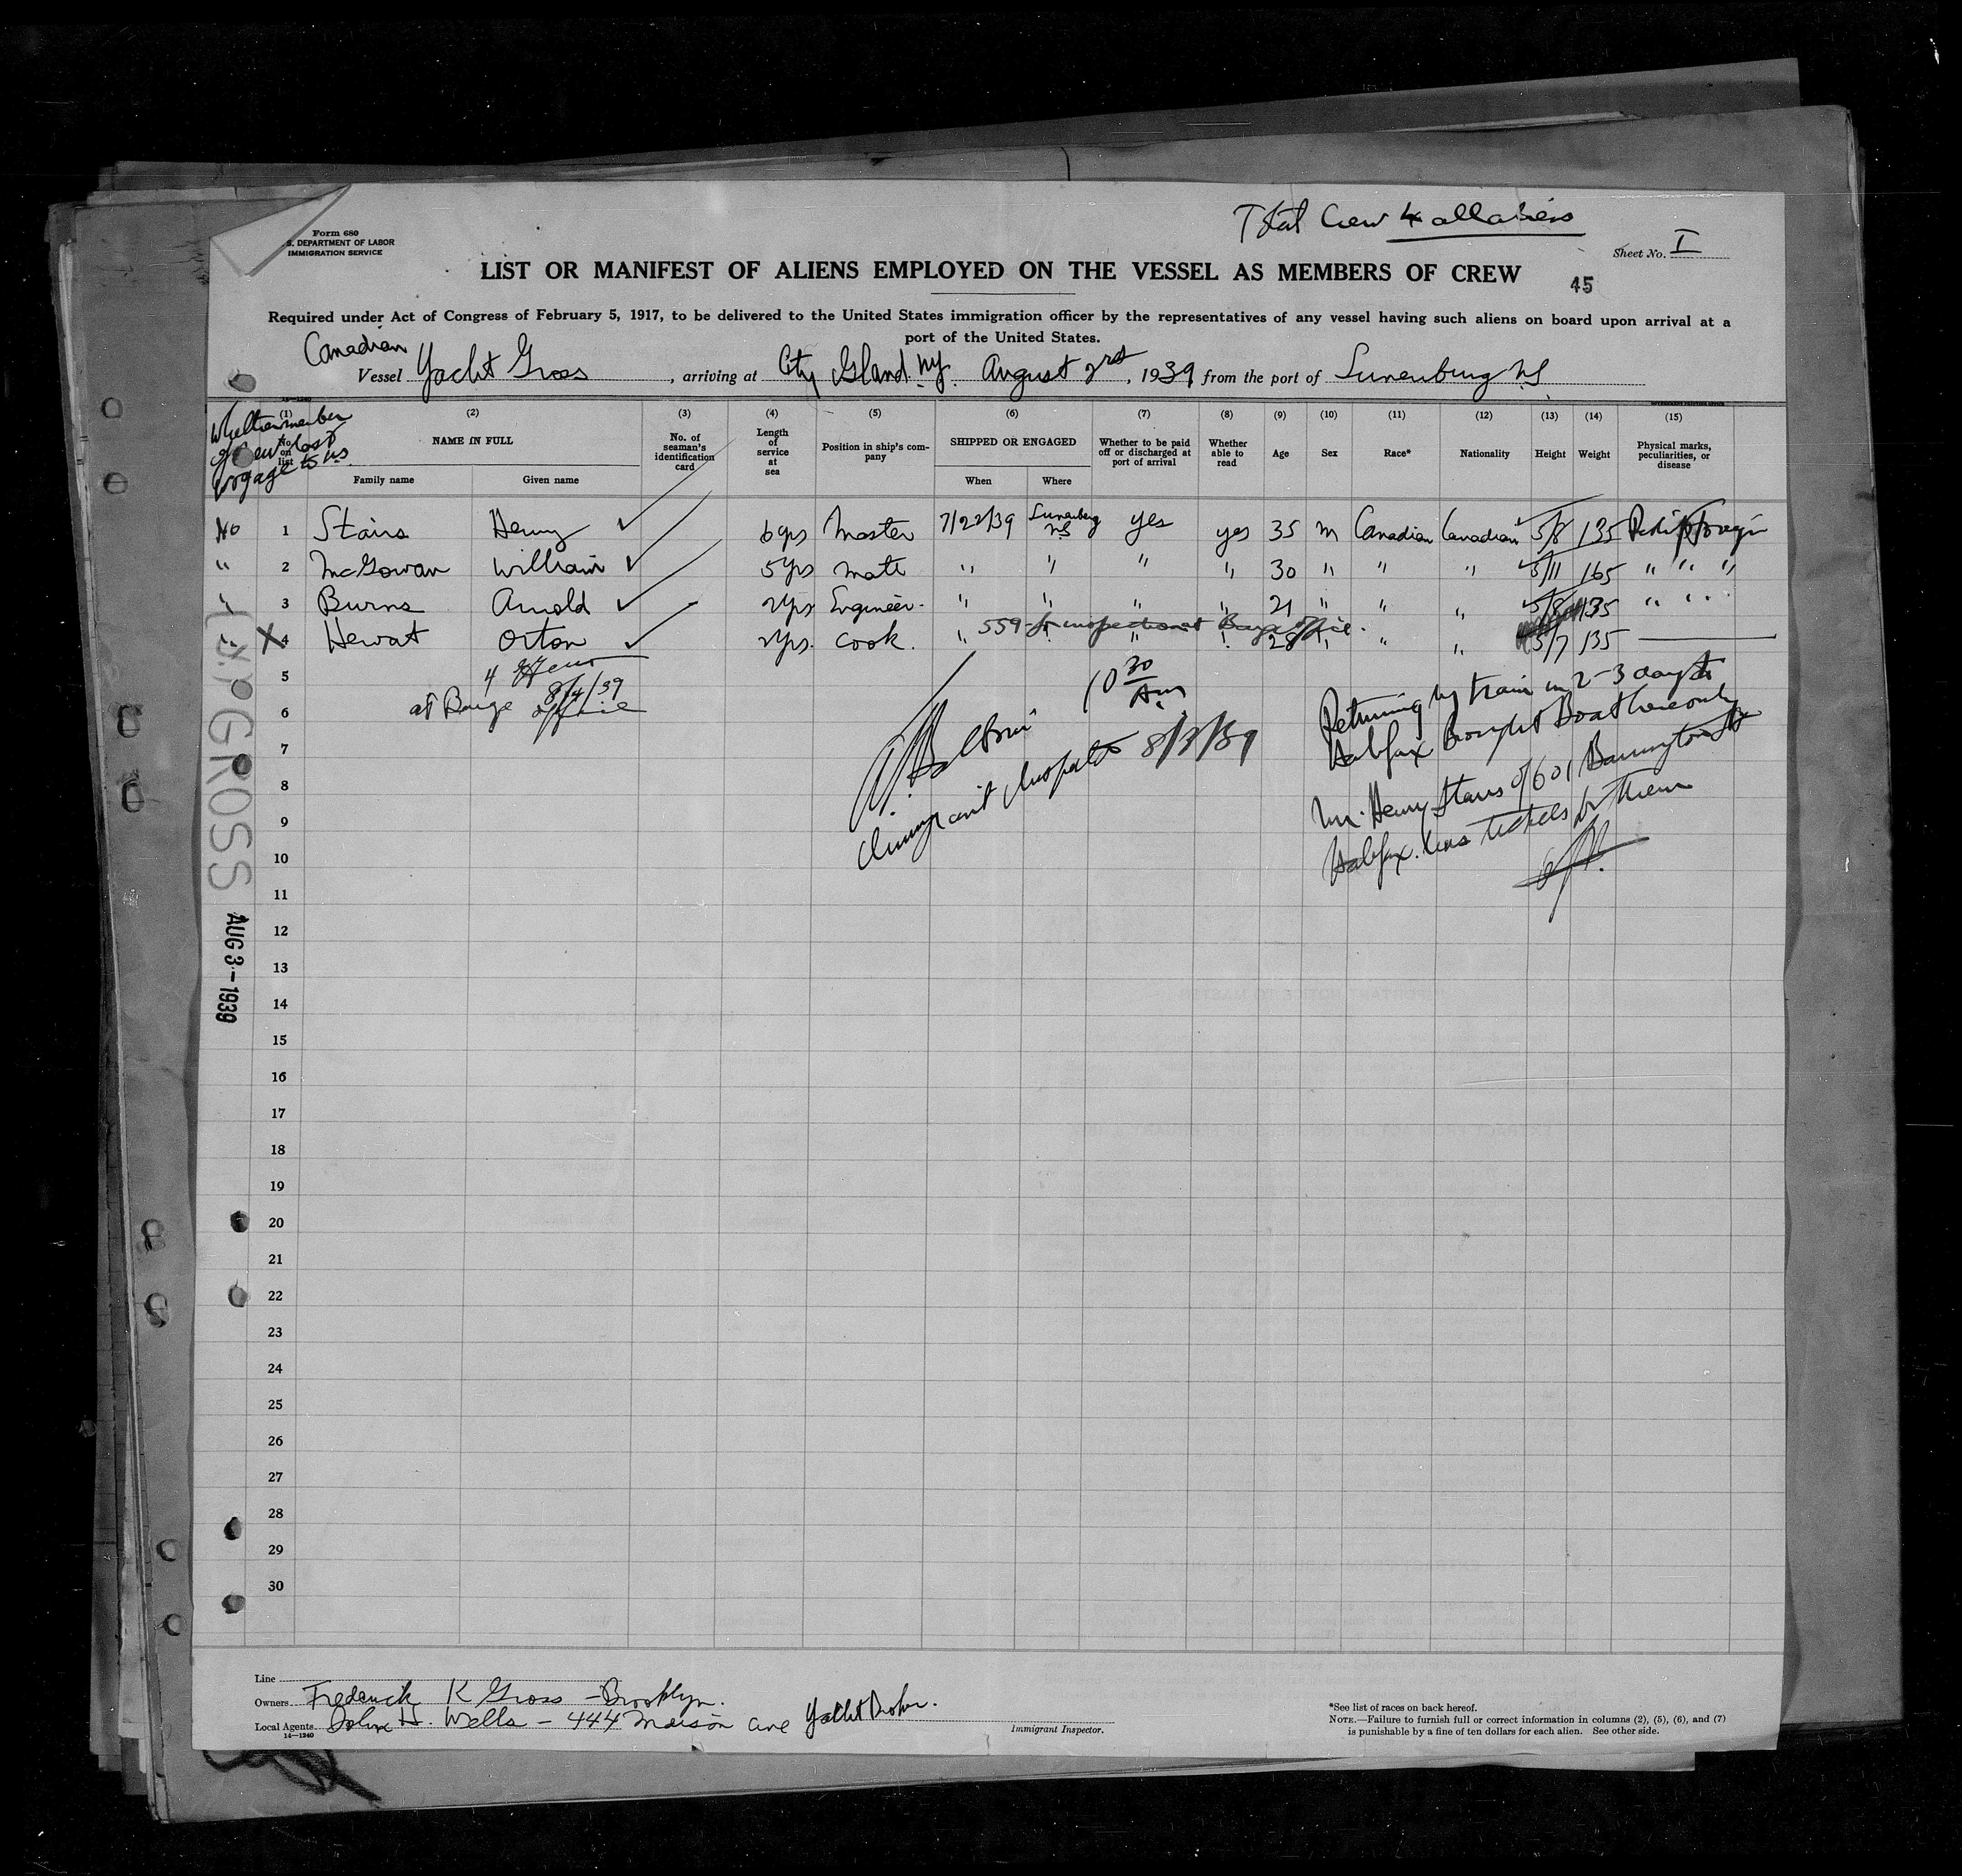 Total Crew 4 all aliens
Form 680
S. DEPARTMENT OF LABOR
IMMIGRATION SERVICE
Sheet No. I
LIST OR MANIFEST OF ALIENS EMPLOYED ON THE VESSEL AS MEMBERS OF CREW
45
Required under Act of Congress of February 5, 1917, to be delivered to the United States immigration officer by the representatives of any vessel having such aliens on board upon arrival at a
port of the United States.
Canadian
Vessel Yacht Gross, arriving at City Island N.Y. August 2rd, 1939 from the port of Lunenburg N.S.
Whether member of crew last voyage to U.S.
(1) No. on list
(2) NAME IN FULL Family name Given name
(3) No. of seaman's identification card
(4) Length of service at sea
(5) Position in ship's company
(6) SHIPPED OR ENGAGED When Where
(7) Whether to be paid off or discharged at port of arrival
(8) Whether able to read
(9) Age
(10) Sex
(11) Race*
(12) Nationality
(13) Height
(14) Weight
(15) Physical marks, peculiarities, or disease
No 1 Stairs Henry 6 yrs Master 7/22/39 Lunenburg NS yes yes 35 m Canadian Canadian 5/8 135
" 2 McGowan William 5 yrs Mate " " " " 30 " " " 5/11 165 " " "
" 3 Burns Arnold 2 yrs Engineer " " " " 21 " " " 5/8 135 " " "
X 4 Hewat Orton 2 yrs. Cook. " " " " 28 " " " 5/7 135
559 for inspection at Barge Office.
4
8/4/39
at Barge office
10 30 Am
Immigrant Inspector 8/3/39
Returning by train in 2-3 days to
Halifax brought Boat here only
Mr. Henry Stairs of 601 Barrington St
Halifax. has tickets for them
5
6
7
8
9
10
11
12
13
14
15
16
17
18
19
20
21
22
23
24
25
26
27
28
29
30
EXP GROSS
AUG 3-1939
Line
Owners Frederick K Gross - Brooklyn.
Local Agents John H. Wells - 444 Madison ave Yacht Broker.
14—1240
Immigrant Inspector.
*See list of races on back hereof.
NOTE.—Failure to furnish full or correct information in columns (2), (5), (6), and (7)
is punishable by a fine of ten dollars for each alien. See other side.